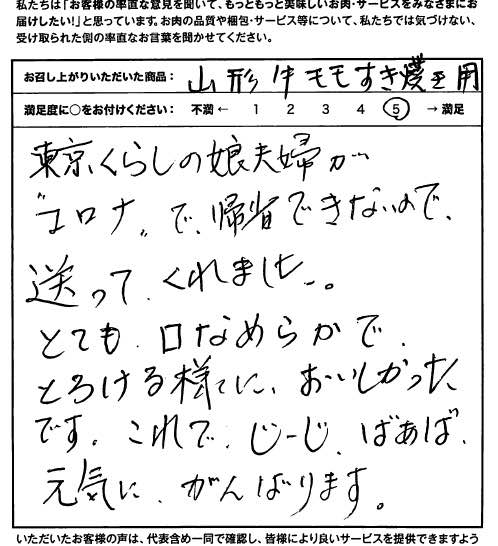 私たちは「お客様の率直な意見を聞いて、もっともっと美味しいお肉・サービスをみなさまにお
届けしたい!」と思っています。お肉の品質や梱包・サービス等について、私たちでは気づけない、
受け取られた側の率直なお言葉を聞かせてください。
お召し上がりいただいた商品: 山形牛モモすき燒き用
満足度に○をお付けください: 不満 ← 1 2 3 4 5 → 満足
東京くらしの娘夫婦が
"コロナ"で、帰省できないので、
送って、くれました。
とても、口なめらかで、
とろける様に、おいしかった
です。これで、じーじ、ばあば、
元気に、がんばります。
いただいたお客様の声は、代表含め一同で確認し、皆様により良いサービスを提供できますよう